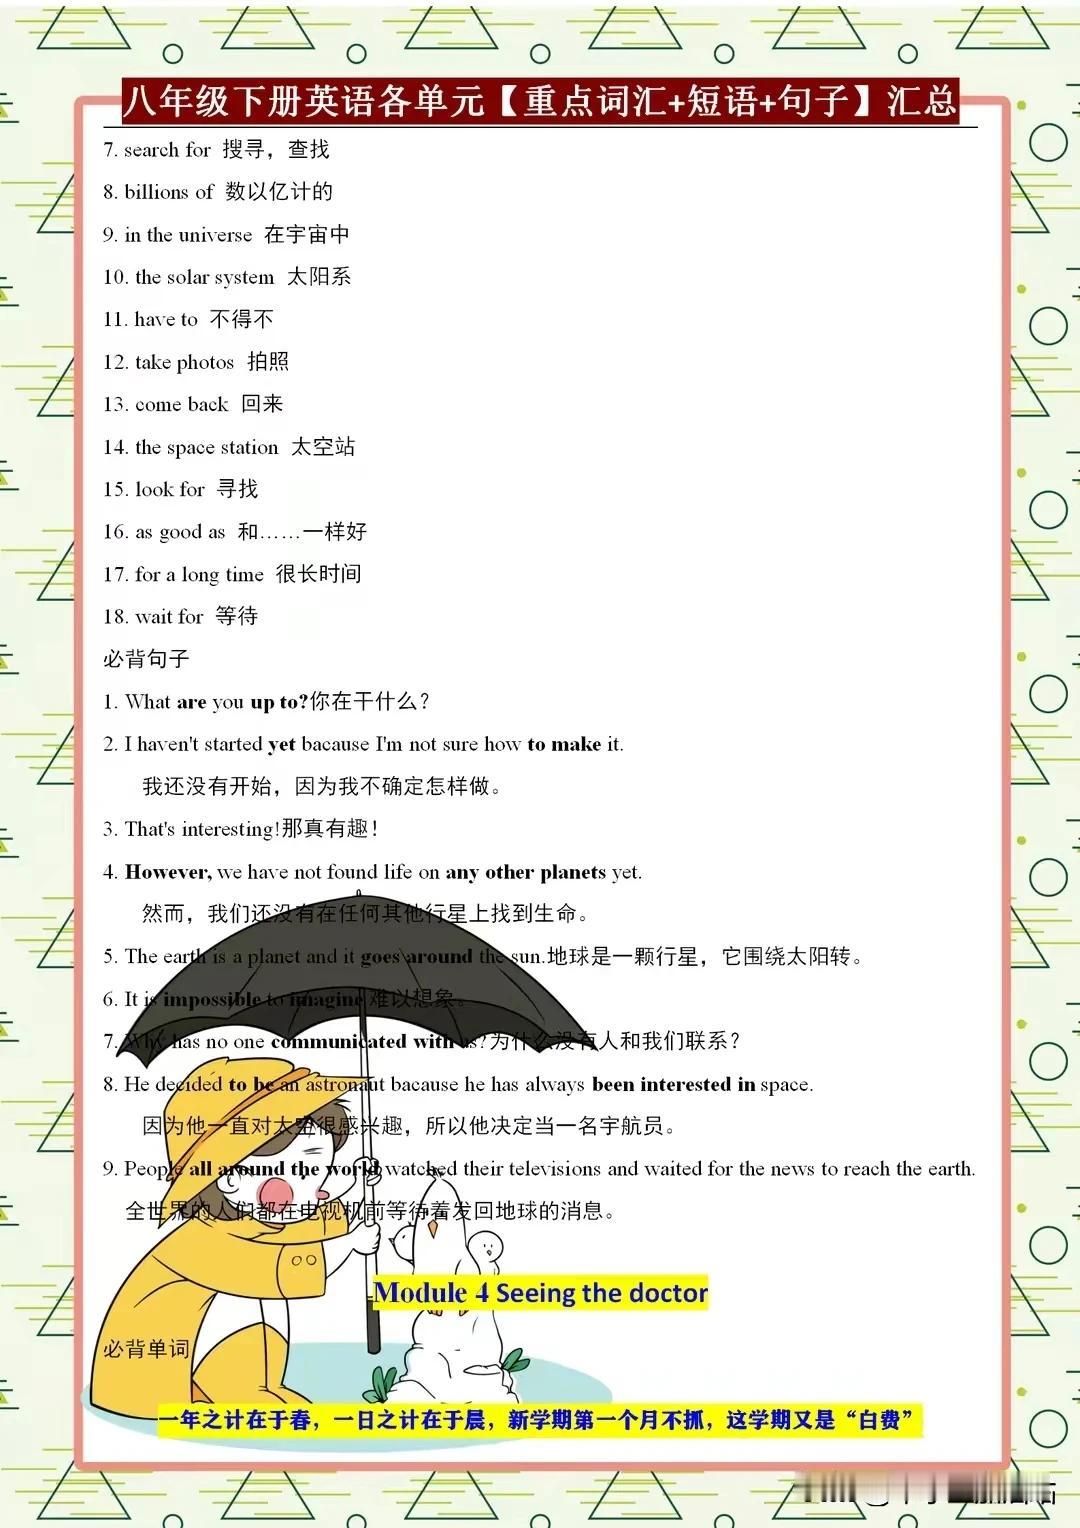 八年级下册英语各单元【重点词汇+短语+句子】汇总
7. search for 搜寻，查找
8. billions of 数以亿计的
9. in the universe 在宇宙中
10. the solar system 太阳系
11. have to 不得不
12. take photos 拍照
13. come back 回来
14. the space station 太空站
15. look for 寻找
16. as good as 和……一样好
17. for a long time 很长时间
18. wait for 等待
必背句子
1. What are you up to?你在干什么？
2. I haven't started yet bacause I'm not sure how to make it.
我还没有开始，因为我不确定怎样做。
3. That's interesting!那真有趣！
4. However, we have not found life on any other planets yet.
然而，我们还没有在任何其他行星上找到生命。
5. The earth is a planet and it goes around the sun.地球是一颗行星，它围绕太阳转。
6. It is impossible to imagine 难以想象。
7. Why has no one communicated with us?为什么没有人和我们联系？
8. He decided to be an astronaut bacause he has always been interested in space.
因为他一直对太空很感兴趣，所以他决定当一名宇航员。
9. People all around the world watched their televisions and waited for the news to reach the earth.
全世界的人们都在电视机前等待着发回地球的消息。
Module 4 Seeing the doctor
必背单词
一年之计在于春，一日之计在于晨，新学期第一个月不抓，这学期又是“白费”